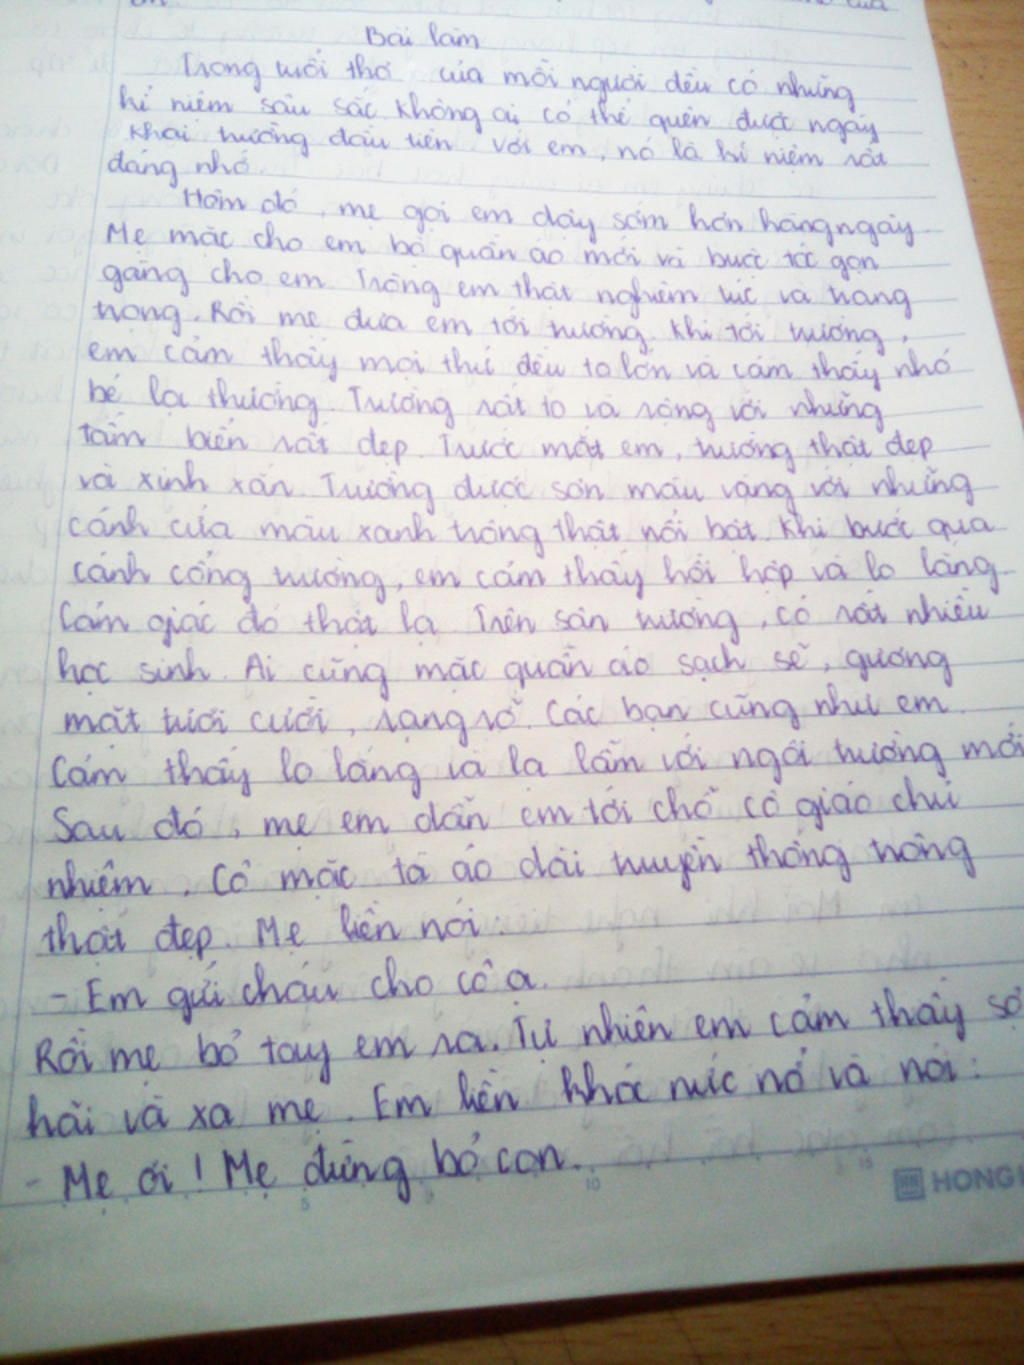 Bài làm
Trong tuổi thơ của mỗi người đều có những
kỉ niệm sâu sắc không ai có thể quên được ngày
khai trường đầu tiên với em, nó là kỉ niệm rất
đáng nhớ
Hôm đó, mẹ gọi em dậy sớm hơn hàng ngày
Mẹ mặc cho em bộ quần áo mới và buộc tóc gọn
gàng cho em. Trông em thật nghiêm túc và trang
trọng. Rồi mẹ đưa em tới trường. Khi tới trường,
em cảm thấy mọi thứ đều to lớn và cảm thấy nhỏ
bé lạ thường. Trường rất to và rộng với những
tấm biển rất đẹp. Trước mắt em, trường thật đẹp
và xinh xắn. Trường được sơn màu vàng với những
cánh cửa màu xanh trông thật nổi bật. Khi bước qua
cánh cổng trường, em cảm thấy hồi hộp và lo lắng
Cảm giác đó thật lạ. Trên sân trường, có rất nhiều
học sinh. Ai cũng mặc quần áo sạch sẽ, gương
mặt tươi cười, rạng rỡ. Các bạn cũng như em.
Cảm thấy lo lắng và lạ lẫm với ngôi trường mới
Sau đó, mẹ em dẫn em tới chỗ cô giáo chủ
nhiệm. Cô mặc tà áo dài truyền thống trông
thật đẹp. Mẹ liền nói.
- Em gửi cháu cho cô ạ.
Rồi mẹ bỏ tay em ra. Tự nhiên em cảm thấy sợ
hãi và xa mẹ. Em liền khóc nức nở và nói:
- Mẹ ơi! Mẹ đừng bỏ con.
5 10
HONG